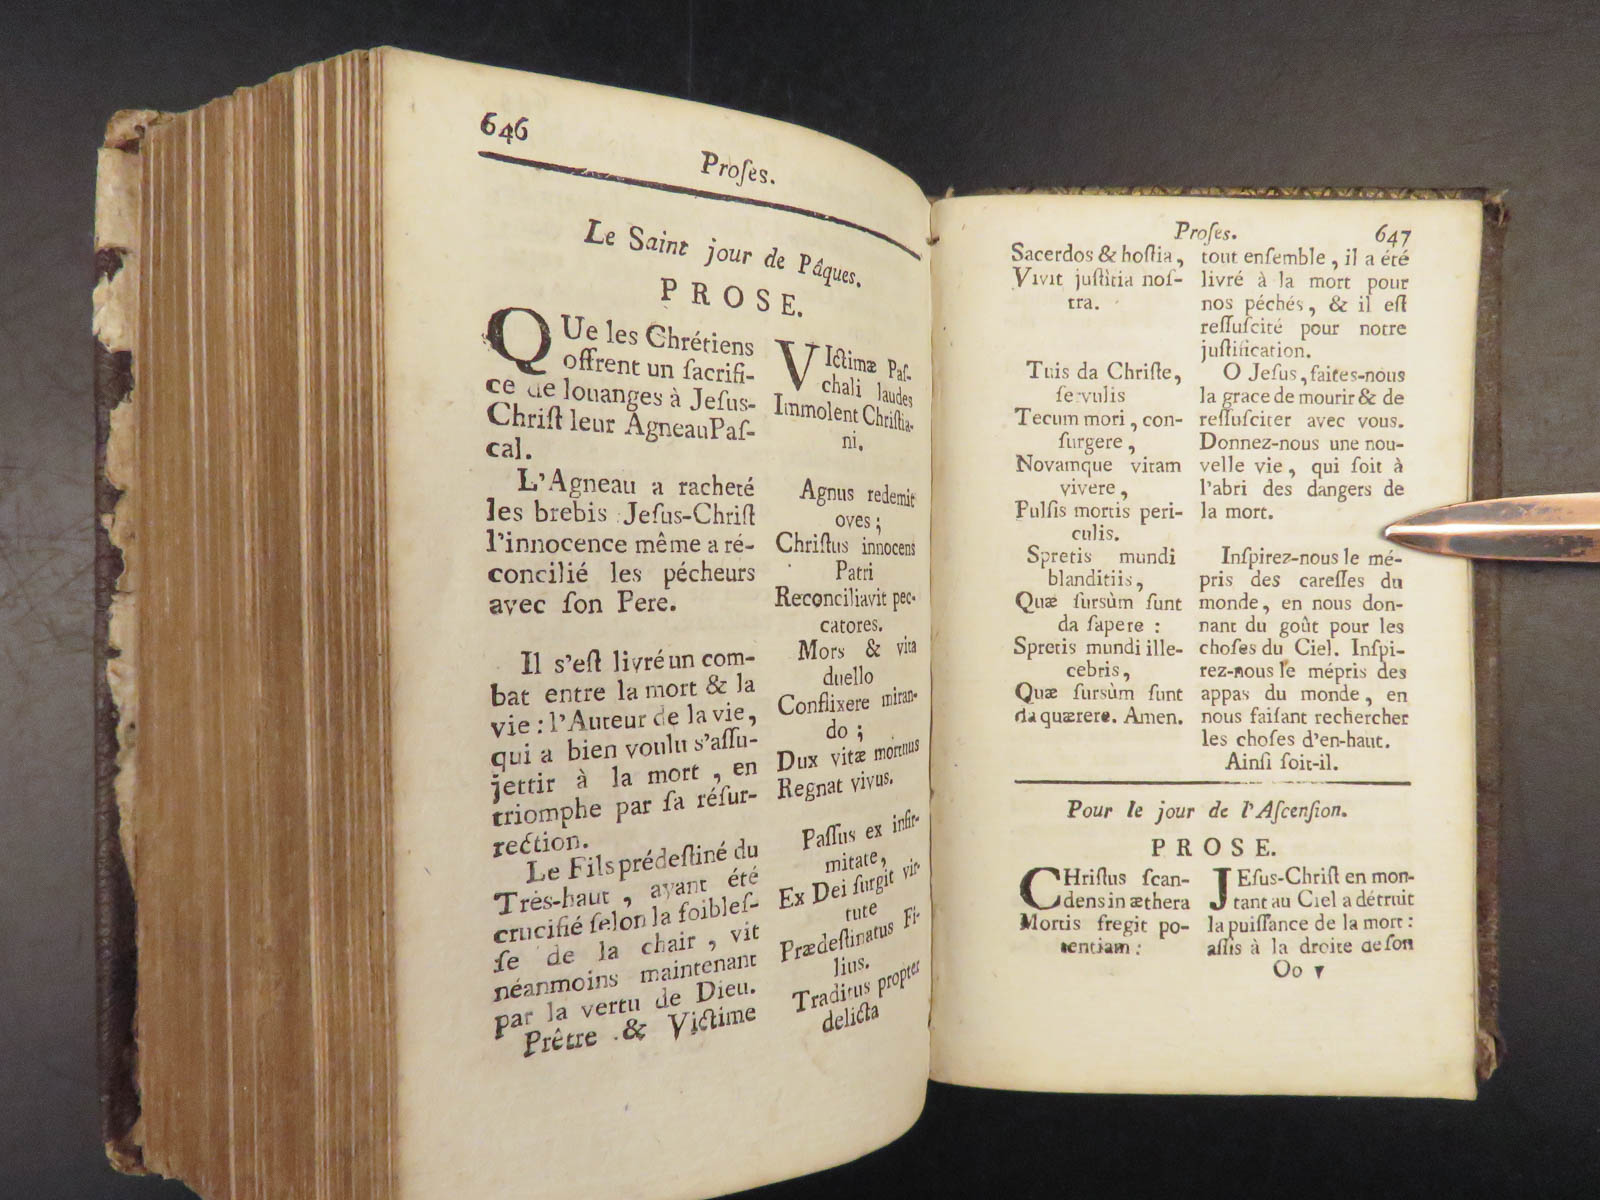 646
Proſes.
Le Saint jour de Pâques.
PROSE.
QUe les Chrétiens
offrent un ſacrifi-
ce de louanges à Jeſus-
Chriſt leur Agneau Paſ-
cal.
L'Agneau a racheté
les brebis : Jeſus-Chriſt
l'innocence même a ré-
concilié les pécheurs
avec ſon Pere.
Il s'eſt livré un com-
bat entre la mort & la
vie : l'Auteur de la vie,
qui a bien voulu s'aſſu-
jettir à la mort, en
triomphe par ſa réſur-
rection.
Le Fils prédeſtiné du
Très-haut, ayant été
crucifié ſelon la foibleſ-
ſe de la chair, vit
néanmoins maintenant
par la vertu de Dieu.
Prêtre & Victime
VIctimæ Paſ-
chali laudes
Immolent Chriſtia-
ni.
Agnus redemit
oves ;
Chriſtus innocens
Patri
Reconciliavit pec-
catores.
Mors & vita
duello
Conflixere miran-
do ;
Dux vitæ mortuus
Regnat vivus.
Paſſus ex infir-
mitate,
Ex Dei ſurgit vir-
tute
Prædeſtinatus Fi-
lius.
Traditus propter
delicta
Proſes.
647
Sacerdos & hoſtia,
Vivit juſtitia noſ-
tra.
Tuis da Chriſte,
ſervulis
Tecum mori, con-
ſurgere,
Novamque vitam
vivere,
Pulſis mortis peri-
culis.
Spretis mundi
blanditiis,
Quæ ſursùm ſunt
da ſapere :
Spretis mundi ille-
cebris,
Quæ ſursùm ſunt
da quærere. Amen.
tout enſemble, il a été
livré à la mort pour
nos péchés, & il eſt
reſſuſcité pour notre
juſtification.
O Jeſus, faites-nous
la grace de mourir & de
reſſuſciter avec vous.
Donnez-nous une nou-
velle vie, qui ſoit à
l'abri des dangers de
la mort.
Inſpirez-nous le mé-
pris des careſſes du
monde, en nous don-
nant du goût pour les
choſes du Ciel. Inſpi-
rez-nous le mépris des
appas du monde, en
nous faiſant rechercher
les choſes d'en-haut.
Ainſi ſoit-il.
Pour le jour de l'Aſcenſion.
PROSE.
CHriſtus ſcan-
dens in æthera
Mortis fregit po-
tentiam :
JEſus-Chriſt en mon-
tant au Ciel a détruit
la puiſſance de la mort :
aſſis à la droite de ſon
Oo v